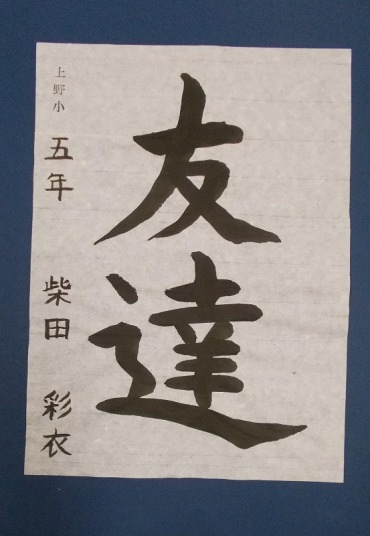 友達
上野小 五年 柴田 彩衣